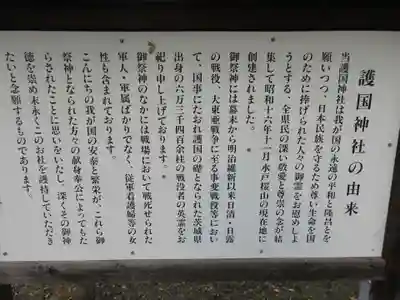 護国神社の由来
当護国神社は我が国の永遠の平和と隆昌とを
願いつつ、日本民族を守るため尊い生命を国
のために捧げられた人々の御霊をお慰めしよ
うとする、全県民の深い敬愛と尊崇の念が結
集して昭和十六年十一月水戸桜山の現在地に
創建されました。
御祭神には幕末から明治維新以来日清・日露
の戦役、大東亜戦争に至る事変戦役等におい
て、国事にたおれ護国の礎となられた茨城県
出身の六万三千四百余柱の戦役者の英霊をお
祀り申し上げております。
御祭神のなかには戦場において戦死せられた
軍人・軍属ばかりでなく、従軍看護婦等の女
性も含まれております。
こんにちの我が国の安泰と繁栄が、これら御
祭神となられた方々の献身奉公によってもた
らされたことに思いをいたし、深くその御神
徳を崇め末永くこのお社を護持していただき
たいと念願するものであります。